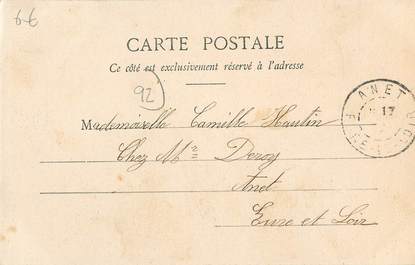 66
CARTE POSTALE
Ce côté est exclusivement réservé à l'adresse
92
Mademoiselle Camille Hautin
Chez Mr Deroy
Anet
Eure et Loir
ANET
17